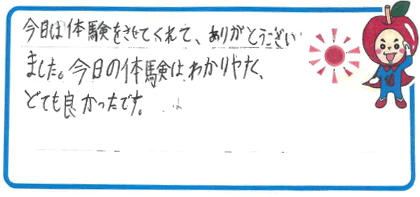 今日は体験をさせてくれて、ありがとうござい
ました。今日の体験は、わかりやたく、
とても良かったです。